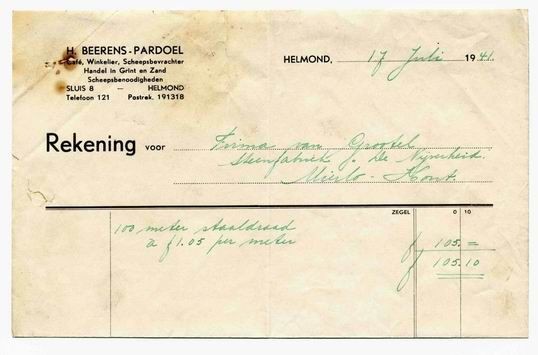 H. BEERENS-PARDOEL
Café, Winkelier, Scheepsbevrachter
Handel in Grint en Zand
Scheepsbenoodigheden
SLUIS 8 — HELMOND
Telefoon 121 Postrek. 191318
HELMOND, 17 Juli 1941.
Rekening voor Firma van Grootel
Steenfabriek "De Nijverheid.
Mierlo-Hout
ZEGEL 0 10
100 meter staaldraad
a ƒ1.05 per meter ƒ 105.=
ƒ 105.10